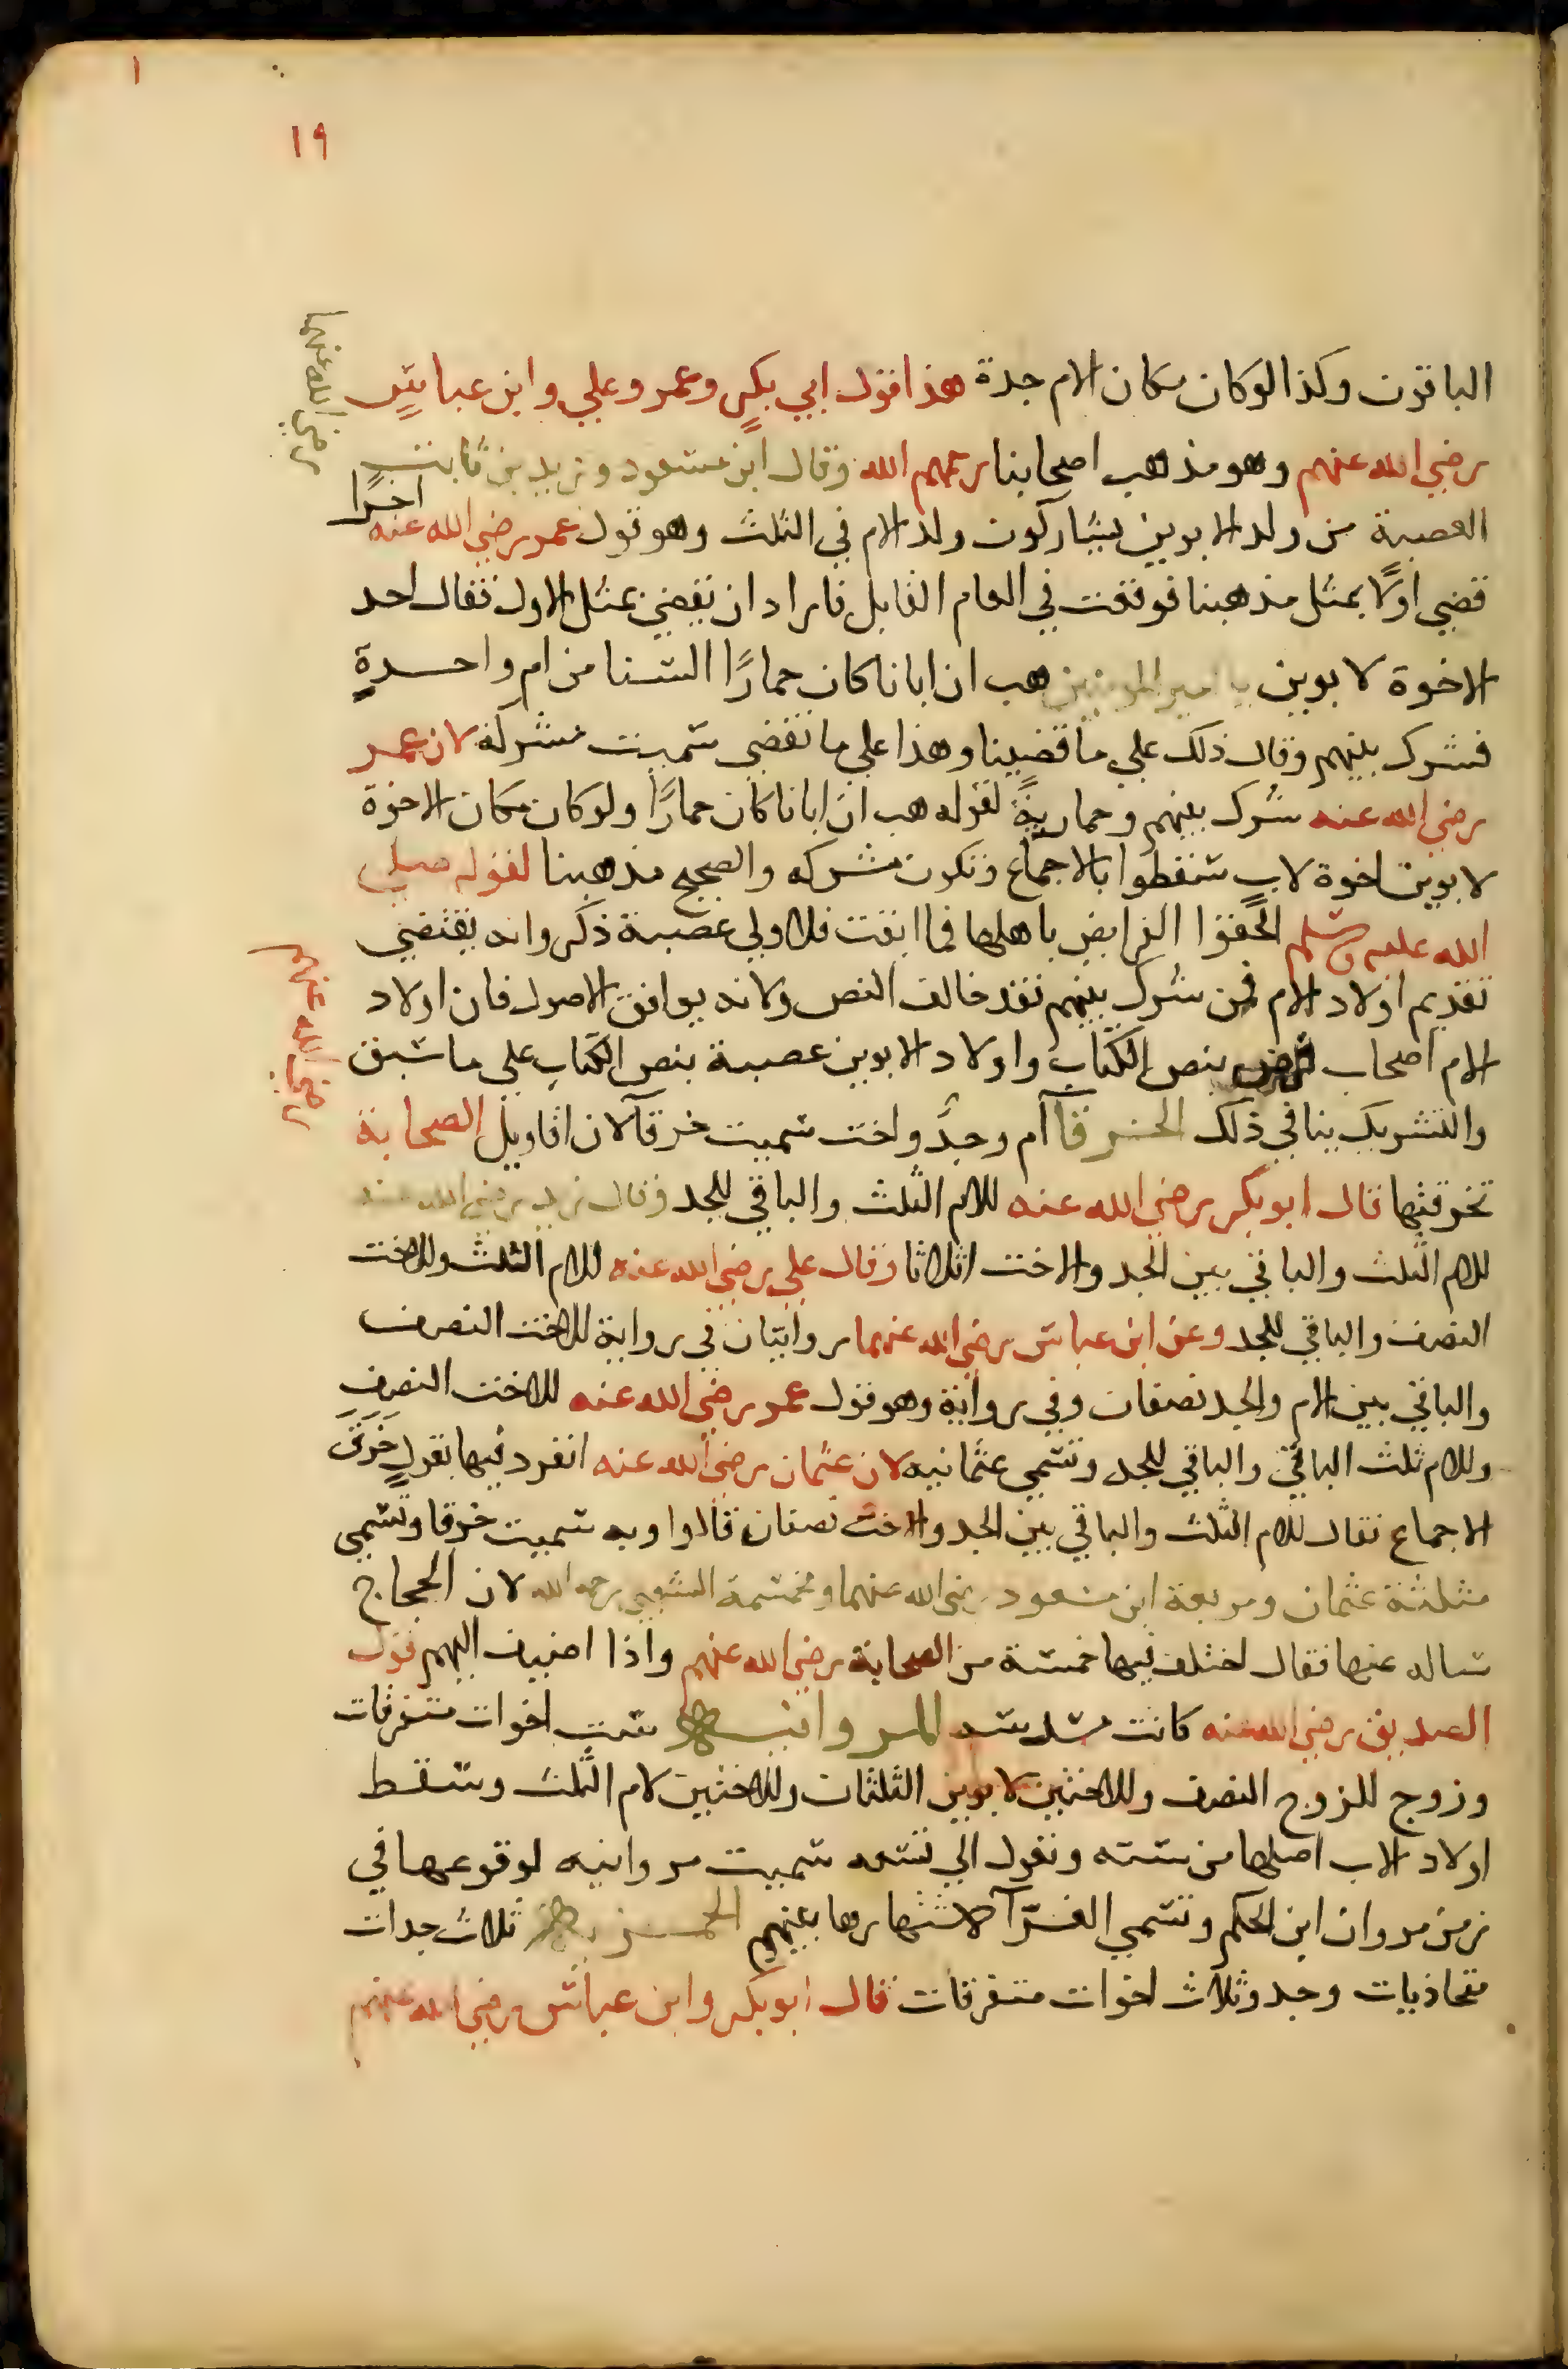 ١
١٩
الباقون وكذا لو كان مكان الام جدة هذا قول ابي بكرٍ وعمر وعلي وابن عباسٍ
رضي الله عنهم وهو مذهب اصحابنا رحمهم الله وقال ابن مسعود وزيد بن ثابت
رضي الله عنهما
العصبة من ولد الابوين يشاركون ولد الام في الثلث وهو قول عمر رضي الله عنه اخرًا
قضي اولًا بمثل مذهبنا فوقعت في العام القابل فاراد ان يقضي بمثل الاول فقال احد
الاخوة لابوين يا امير المومنين هب ان ابانا كان حمارًا السنا من ام واحدةٍ
فشرك بينهم وقال ذلك علي ما قضينا وهذا علي ما نقضي سميت مشركه لان عمر
رضي الله عنه شرك بينهم وحماريةً لقوله هب ان ابانا كان حمارًا ولو كان مكان الاخوة
لابوين اخوة لابٍ سقطوا بالاجماع وتكون مشركه والصحيح مذهبنا لقوله صلي
الله عليه وسلم الحقوا الفرايض باهلها فما ابقت فلاولي عصبة ذكر وانه يقتضي
تقديم اولاد الام فمن شرك بينهم فقد خالف النص ولانه يوافق الاصول فان اولاد
الام اصحاب فرض بنص الكتاب واولاد الابوين عصبة بنص الكتاب علي ما سبق
رضي الله عنهم
والتشريك ينافي ذلك الخرقآ ام وجدٌ واخت سميت خرقآ لان اقاويل الصحابة
تخرقتها قال ابو بكر رضي الله عنه للام الثلث والباقي للجد وقال زيد رضي الله عنه
للام الثلث والباقي بين الجد والاخت اثلاثا وقال علي رضي الله عنه للام الثلث وللاخت
النصف والباقي للجد وعن ابن عباس رضي الله عنهما روايتان في رواية للاخت النصف
والباقي بين الام والجد نصفان وفي رواية وهو قول عمر رضي الله عنه للاخت النصف
وللام ثلث الباقي والباقي للجد وتسمي عثمانيه لان عثمان رضي الله عنه انفرد فيها بقولٍ خَرَقَ
الاجماع فقال للام الثلث والباقي بين الجد والاخت نصفان قالوا وبه سميت خرقا وتسمي
مثلثة عثمان ومربعة ابن مسعود رضي الله عنهما ومخمسة الشعبي رحمه الله لان الحجاج
ساله عنها فقال اختلف فيها خمسة من الصحابة رضي الله عنهم واذا اضيف اليهم قول
الصديق رضي الله عنه كانت مسدسه المروانيه ست اخوات متفرقات
وزوج للزوج النصف وللاختين لابوين الثلثان وللاختين لام الثلث وسقط
اولاد الاب اصلها من سته وتعول الي تسعه سميت مروانيه لوقوعها في
زمن مروان ابن الحكم وتسمي الغرّآ لاشتهارها بينهم الحمزيه ثلاث جدات
متحاذيات وجد وثلاث اخوات متفرقات قال ابو بكر وابن عباس رضي الله عنهم